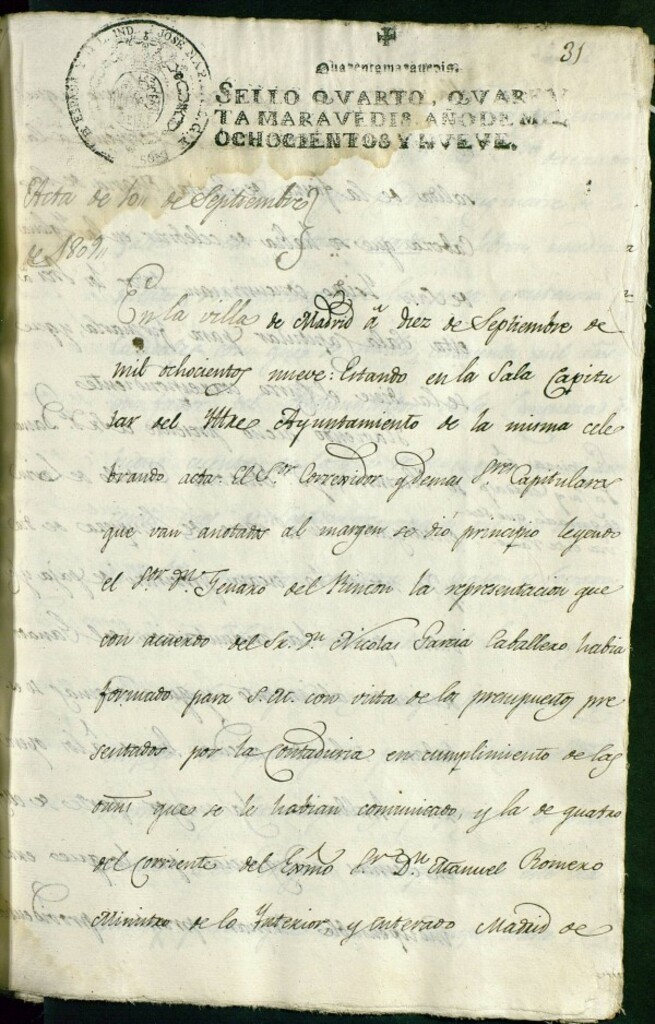 31
Quarenta maravedis.
SELLO QVARTO, QVAREN
TA MARAVEDIS, AÑO DE MIL
OCHOCIENTOS Y NVEVE.
Acta de 10 de Septiembre
de 1809
En la villa de Madrid â diez de Septiembre de
mil ochocientos nueve: Estando en la Sala Capitu
lar del Iltre Ayuntamiento de la misma cele
brando acta. El Sor. Corregidor y demas Sres Capitulares
que van anotados al margen se dió principio leyendo
el Sor. Dn. Genaro del Rincon la representacion que
con acuerdo del Sr. Dn Nicolas Garcia Caballero habia
formado para S.M. con vista de los presupuestos pre
sentados por la Contaduria en cumplimiento de las
que se le habian comunicado, y la de quatro
del Corriente del Exmo Sr Dn. Manuel Romero
Ministro de lo Interior y enterado Madrid de